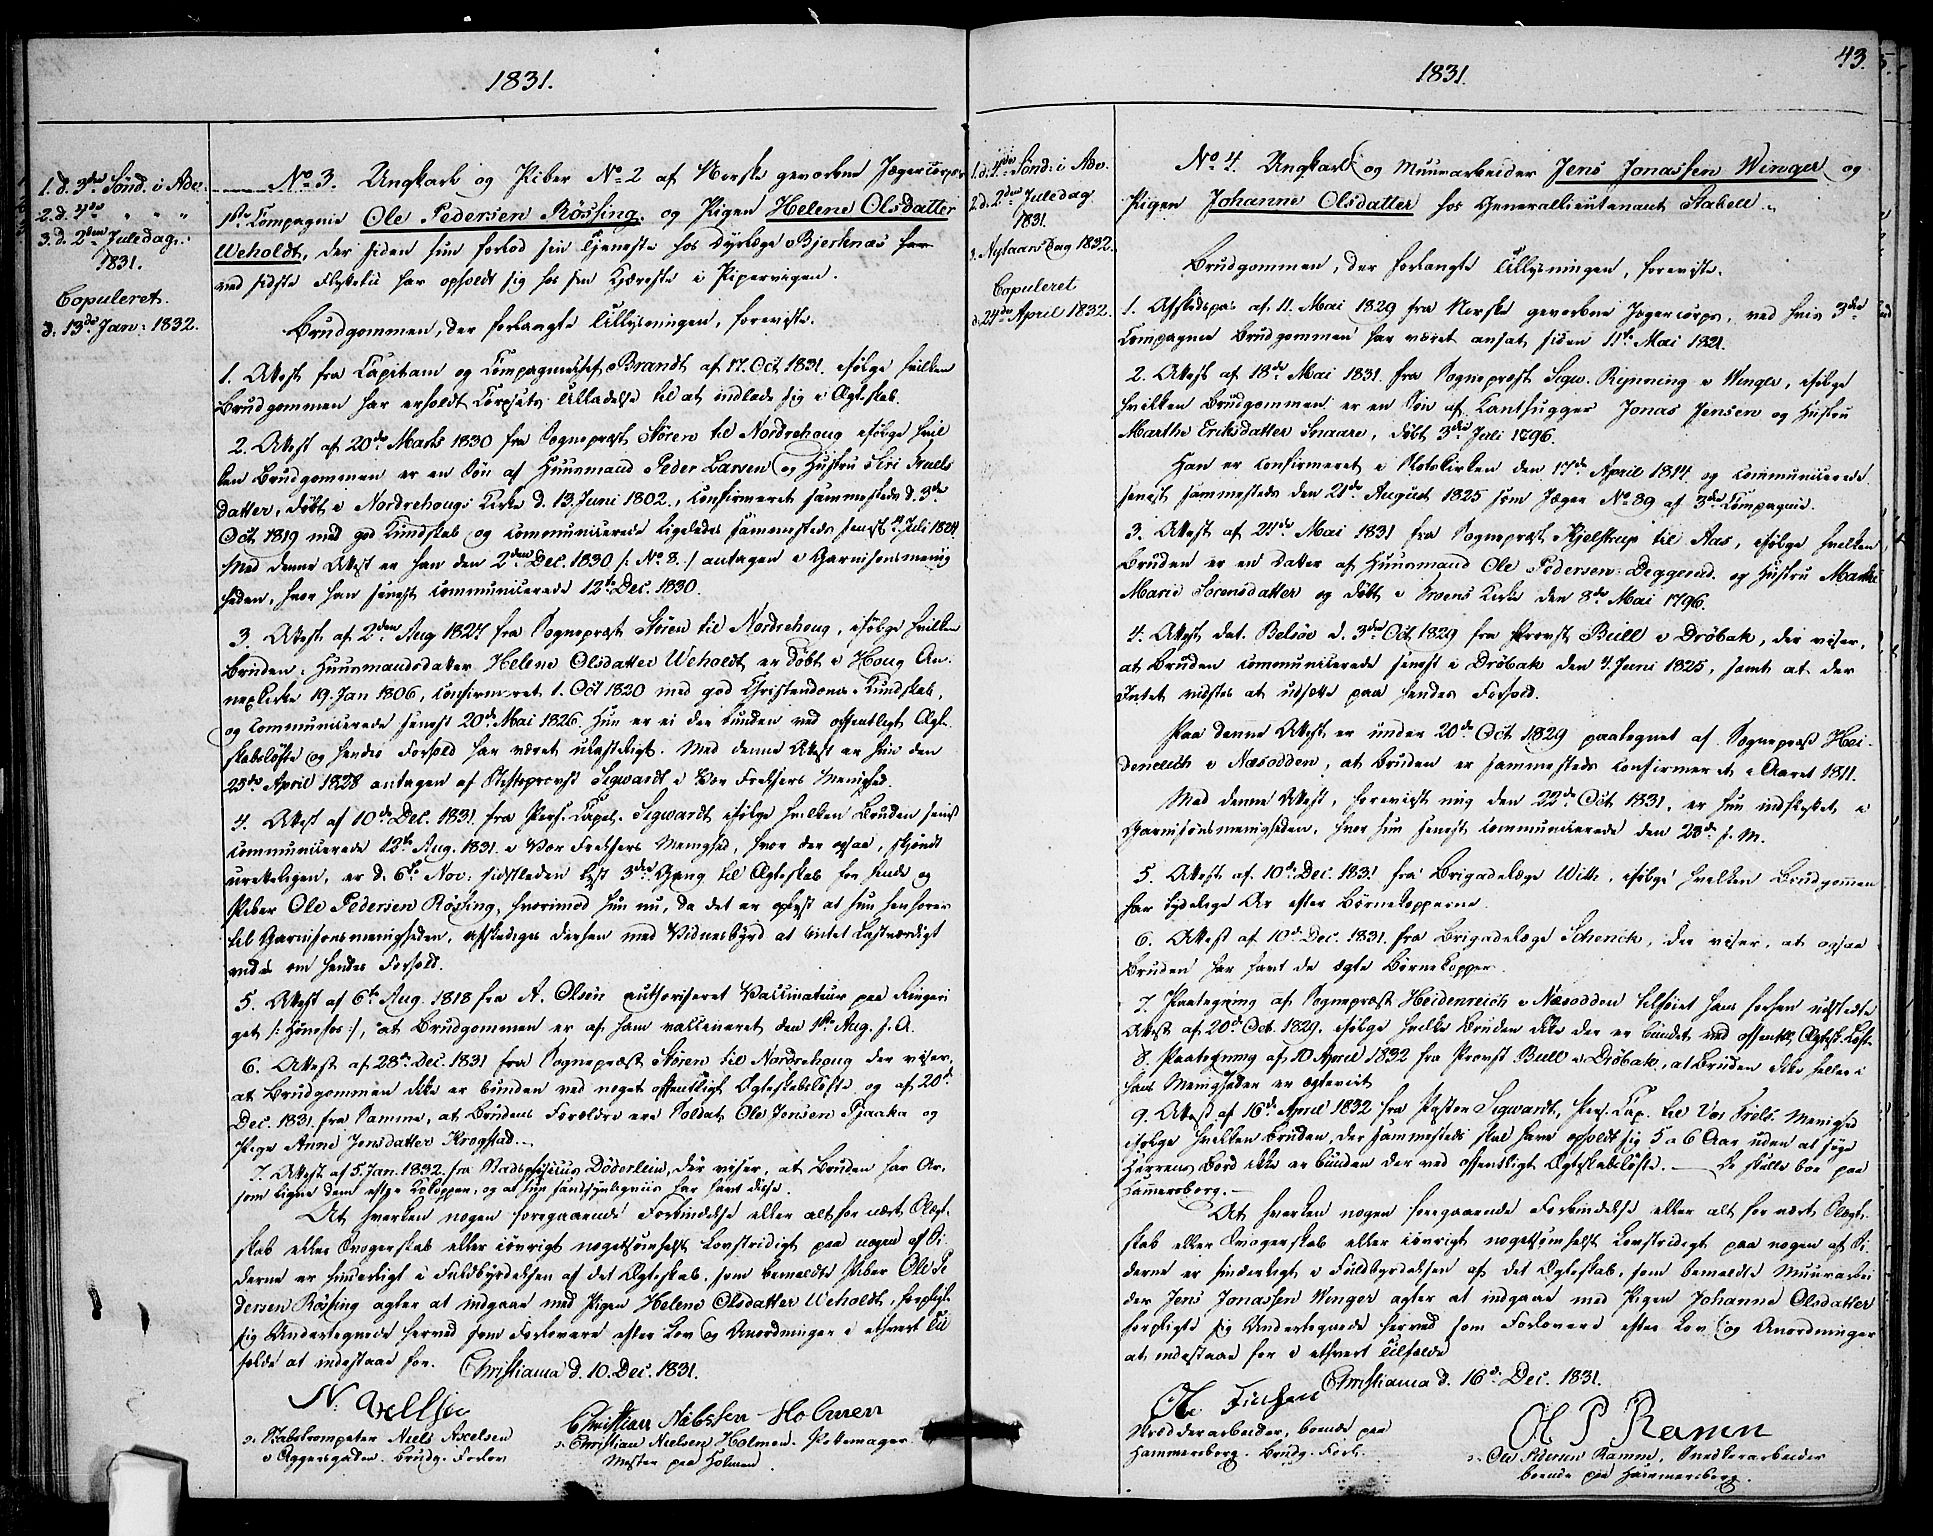 1831.
1. d. 3die Sönd. i Adv.
2. d. 4de " " "
3. d. 2den Juledag
1831.
Copuleret
d. 13de Jan: 1832.
No 3. Ungkarl og Piber No 2 af Norske gevorbne Jægercorps
1ste Compagnie Ole Pedersen Rössing og Pigen Helene Olsdatter
Weholdt, der siden hun forlod sin Tjeneste hos Dyrlæge Bjerknæs
ved sidste Flyttetid har opholdt sig hos sin Kjæreste i Pipervigen.
Brudgommen, der forlangte Tillysningen, foreviste.
1. Attest fra Capitain og Compagniechef Brandt af 17. Oct 1831. ifölge hvilken
Brudgommen har erholdt Corpsets Tilladelse til at indlade sig i Ægteskab.
2. Attest af 20de Marts 1830 fra Sognepræst Stören til Nordrehoug ifölge hvil
ken Brudgommen er en Sön af Huusmand Peder Larsen og Hustru Siri Truels
datter, döbt i Nordrehougs Kirke d. 13. Juni 1802., confirmeret sammesteds d. 3die
Oct. 1819 med god Kundskab og communicerede ligeledes sammesteds senest 4 Juli 1824.
Med denne Attest er han den 2den Dec. 1830 /: No 8. :/ antagen i Garnisonsmenig
heden, hvor han senest communicerede 12te Dec. 1830.
3. Attest af 2den Aug 1827 fra Sognepræst Stören til Nordrehoug, ifölge hvilken
Bruden: Huusmandsdatter Helene Olsdatter Weholdt er döbt i Houg An-
nexkirke 19. Jan 1806, confirmeret 1. Oct 1820 med god Christendoms-Kundskab,
og communicerede senest 20de Mai 1826. Hun er ei der bunden ved offentligt Ægte-
skabslöfte og hendes Forhold har været ulasteligt. Med denne Attest er hun den
23de April 1828 antagen af Stiftsprovst Sigwardt i Vor Frelsers Menighed.
4. Attest af 10de Dec. 1831. fra Pers. Capel. Sigwardt ifölge hvilken Bruden senest
communicerede 12te Aug. 1831. i Vor Frelsers Menighed, hvor der ogsaa, skjöndt
urettelig, er d. 6te Nov: sidstleden lyst 3die Gang til Ægteskab for hende og
Piber Ole Pedersen Rössing, hvorimod hun nu, da det er oplyst at hun henhörer
til Garnisonsmenigheden, afskediges derhen med Vidnesbyrd at Intet Lastværdigt
vides om hendes Forhold.
5. Attest af 6te Aug. 1818 fra A. Olsen authoriseret Vaccinateur paa Ringeri
get /: Hönefos :/, at Brudgommen er af ham vaccineret den 1ste Aug. s. A.
6. Attest af 28de Dec. 1831 fra Sognepræst Stören til Nordrehoug der viser,
at Brudgommen ikke er bunden ved noget offentligt Ægteskabslöfte og af 20de
Dec. 1831. fra Samme, at Brudens Forældre ere Soldat Ole Jensen Pjaaka og
Pige Anne Jensdatter Krogstad.
7. Attest af 5. Jan. 1832. fra Stadsphysicus Döderlein, der viser, at Bruden har Ar,
som ligne dem efter Kokopper, og at hun sandsynligviis har havt disse.
At hverken nogen foregaaende Forbindelse eller alt for nært Slægt-
skab eller Svogerskab eller iövrigt nogetsomhelst Lovstridigt paa nogen af Si
derne er hinderligt i Fuldbyrdelsen af det Ægteskab, som bemeldte Piber Ole Pe
dersen Rössing agter at indgaae med Pigen Helene Olsdatter Weholdt, forpligte
sig Undertegnede herved som Forlovere efter Lov og Anordninger i ethvert Til
fælde at indestaae for. Christiania d. 10. Dec. 1831.
N. Axelsen Christian Nielssen Holmen
o: Stabstrompeter Niels Axelsen o: Christian Nielsen Holmen. Pottemager
i Aggersgaden. Brudg. Forlov Mester paa Holmen.
1831.
43.
1. d. 4de Sönd: i Adv.
2. d. 2den Juledag
1831.
3. Nytaarsdag 1832.
Copuleret
d. 24de April 1832.
No 4. Ungkarl og Muurarbeider Jens Jonassen Winger og
Pigen Johanne Olsdatter hos Generallieutenant Stabell.
Brudgommen, der forlangte Tillysningen, foreviste.
1. Afskedspas af 11. Mai 1829 fra Norske gevorbne Jægercorps, ved hvis 3die
Compagnie Brudgommen har været ansat siden 11te Mai 1821.
2. Attest af 18de Mai 1831. fra Sognepræst Sigw. Rynning i Winger, ifölge
hvilken Brudgommen er en Sön af Kanthugger Jonas Jensen og Hustru
Marthe Eriksdatter Snaare, döbt 3die Juli 1796.
Han er confirmeret i Slotskirken den 17de April 1814 og communicerede
senest sammesteds den 21de August 1825 som Jæger No 39 af 3die Compagnie.
3. Attest af 24de Mai 1831 fra Sognepræst Kjelstrup til Aas, ifölge hvilken
Bruden er en Datter af Huusmand Ole Pedersen Deggerud og Hustru Marthe
Marie Sorensdatter og döbt i Kroens Kirke den 8de Mai 1796.
4. Attest dat. Belsöe d. 3die Oct. 1829 fra Provst Bull i Dröbak, der viser,
at Bruden communicerede senest i Dröbak den 7. Juni 1825, samt at der
Intet vidstes at udsætte paa hendes Forhold.
Paa denne Attest er under 20de Oct 1829 paategnet af Sognepræst Hei-
denreich i Næsodden, at Bruden er sammesteds confirmeret i Aaret 1811.
Med denne Attest, forevist mig den 22de Oct 1831, er hun indskrevet i
Garnisonsmenigheden, hvor hun senest communicerede den 23de s. M.
5. Attest af 10de Dec. 1831 fra Brigadelæge Witte, ifölge hvilken Brudgommen
har tydelige Ar efter Börnekopperne.
6. Attest af 10de Dec. 1831. fra Brigadelæge Schenck, der viser, at ogsaa
Bruden har havt de ægte Börnekopper.
7. Paategning af Sognepræst Heidenreich i Næsodden tilföiet hans forhen udstedte
Attest af 20de Oct. 1829, ifölge hvilke Bruden ikke der er bundet ved offentl. Ægtesk. Löfte.
8. Paategning af 10 April 1832 fra Provst Bull i Dröbak, at Bruden ikke heller i
hans Menigheder er ægteviet.
9. Attest af 16de April 1832 fra Pastor Sigwardt, Pers. Cap. til Vor Frels. Menighed
ifölge hvilken Bruden, der sammesteds skal have opholdt sig 5 a 6 Aar uden at söge
Herrens Bord ikke er bunden der ved offentligt Ægteskabslöfte. — De skulle boe paa
Hammersborg.
At hverken nogen foregaaende Forbindelse eller alt for nært Slægt-
skab eller Svogerskab eller iövrigt nogetsomhelst Lovstridigt paa nogen af Si-
derne er hinderligt i Fuldbyrdelsen af det Ægteskab, som bemeldte Muurarbei
der Jens Jonassen Winger agter at indgaae med Pigen Johanne Olsdatter
forpligte sig Undertegnede herved som Forlovere efter Lov og Anordninger
at indestaae for i ethvert Tilfælde
Christiania d. 16de Dec. 1831.
Ole
O P Ramm
Skrædderarbeider, boende paa o: Ole Pedersen Ramm, Snedkerarbeider
Hammersborg. Brudg. Forl. boende paa Hammersborg.